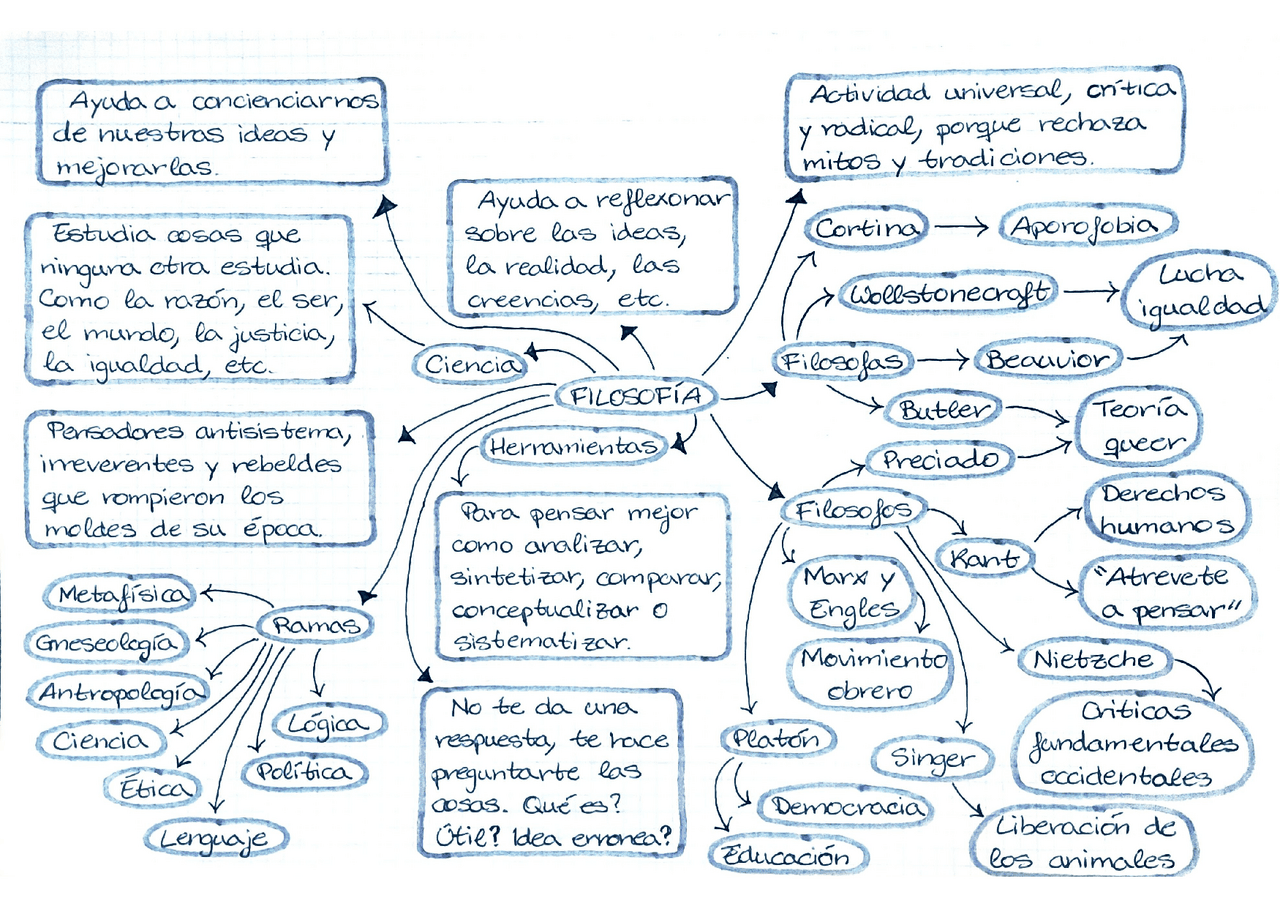 Ayuda a concienciarnos
de nuestras ideas y
mejorarlas.
Actividad universal, crítica
y radical, porque rechaza
mitos y tradiciones.
Ayuda a reflexonar
sobre las ideas,
la realidad, las
creencias, etc.
Estudia cosas que
ninguna otra estudia.
Como la razón, el ser,
el mundo, la justicia,
la igualdad, etc.
Ciencia
FILOSOFÍA
Herramientas
Pensadores antisistema,
irreverentes y rebeldes
que rompieron los
moldes de su época.
Para pensar mejor
como analizar,
sintetizar, comparar,
conceptualizar o
sistematizar.
No te da una
respuesta, te hace
preguntarte las
cosas. Qué es?
Útil? Idea erronea?
Ramas
Metafísica
Gneseología
Antropología
Ciencia
Ética
Lenguaje
Política
Lógica
Filosofas
Cortina
Aporofobia
Wollstonecraft
Lucha
igualdad
Beauvior
Butler
Teoría
queer
Filosofos
Preciado
Kant
Derechos
humanos
"Atrevete
a pensar"
Marx y
Engles
Movimiento
obrero
Nietzche
Criticas
fundamentales
occidentales
Platón
Democracia
Educación
Singer
Liberación de
los animales